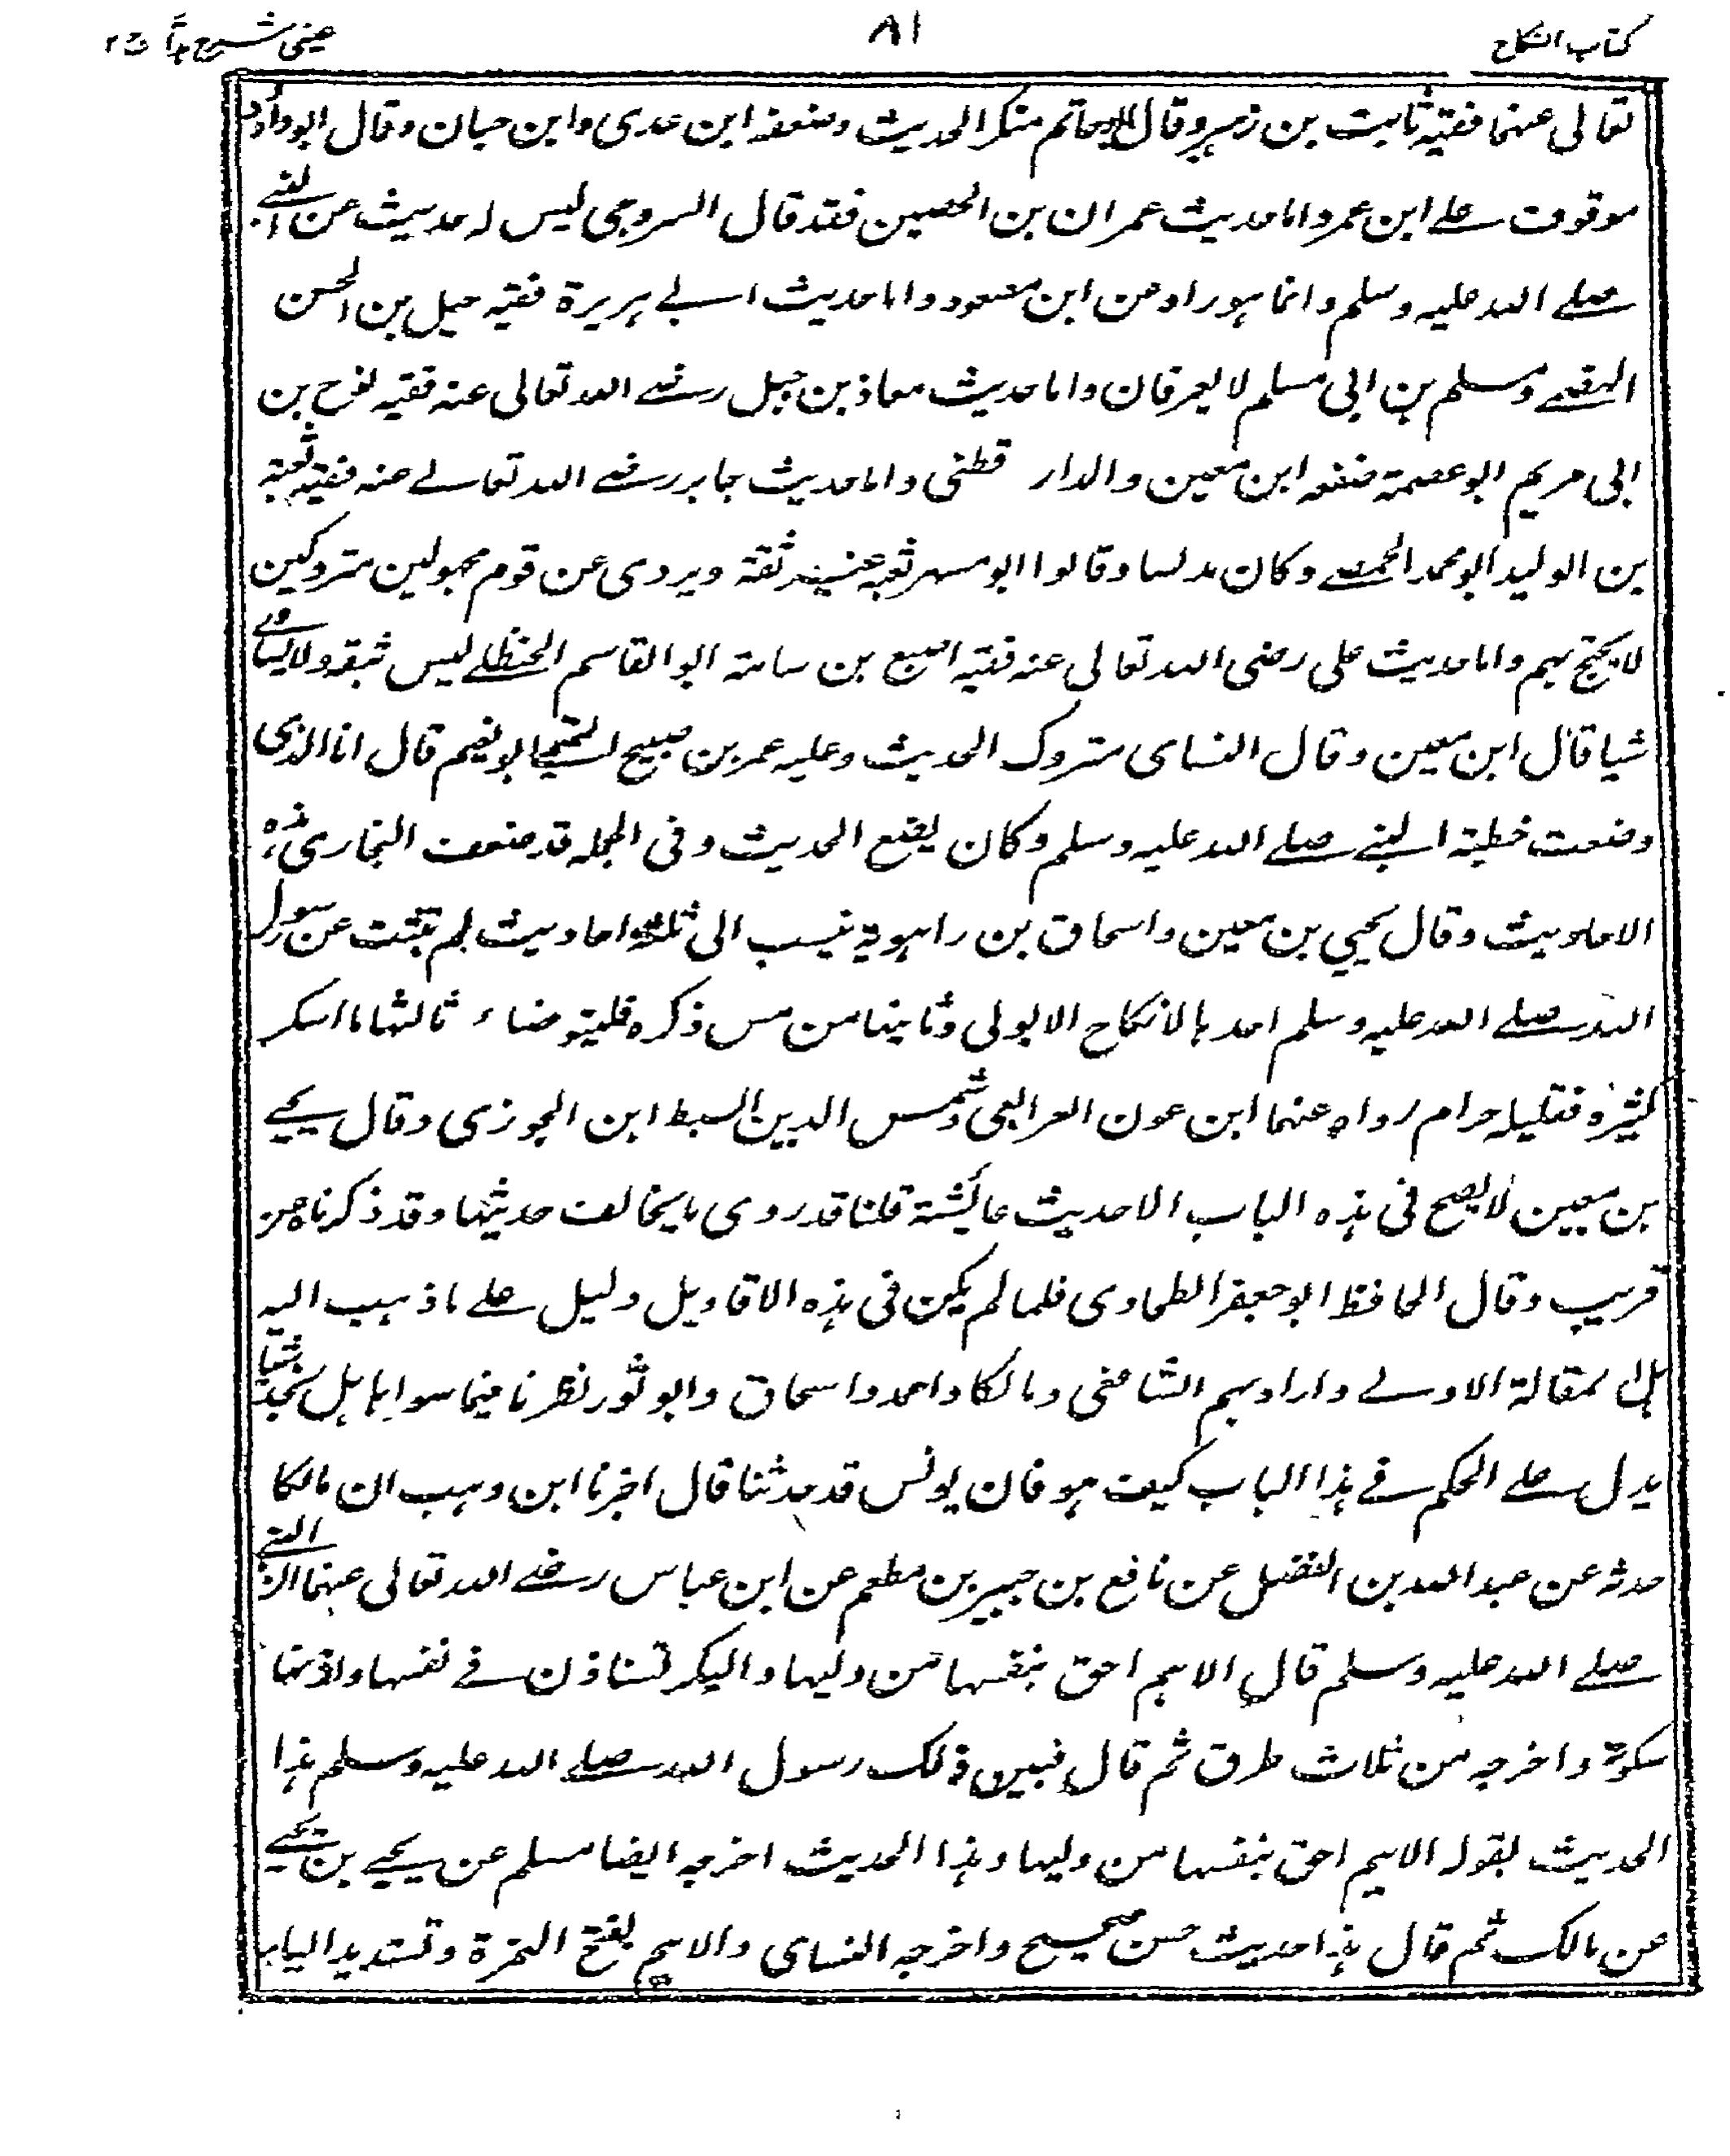 كتاب النكاح
٨١
عينى شرح ج ٢
تعالى عنهما ففيه ثابت بن زهير وقال ابو حاتم منكر الحديث وضعفه ابن عدى وابن حبان وقال ابو داود
موقوف على ابن عمر واما حديث عمران بن الحصين فقد قال السروجى ليس له حديث عن النبي
صلى الله عليه وسلم وانما هو راو عن ابن مسعود واما حديث ابى هريرة ففيه جبل بن الحسن
ومسلم بن ابى مسلم لا يعرفان واما حديث معاذ بن جبل رضى الله تعالى عنه ففيه نوح بن
ابى مريم ابو عصمة ضعفه ابن معين والدار قطنى واما حديث جابر رضى الله تعالى عنه ففيه بقية
بن الوليد ابو محمد الحمصى وكان مدلسا وقالوا ابو مسهر بقية ثقة ويروى عن قوم مجهولين متروكين
لا يحتج بهم واما حديث على رضى الله تعالى عنه ففيه اصبع بن ابو القاسم الحنظلى ليس بثقة ولا يساوى
شيا قال ابن معين وقال النساى متروك الحديث وعليه عمر بن صبيح ابو نعيم قال انا الذى
وضعت خطبة النبى صلى الله عليه وسلم وكان يضع الحديث وفى الجملة قد ضعف البخارى هذه
الاحاديث وقال يحيى بن معين واسحاق بن راهوية ينسب الى ثلثة احاديث لم تثبت عن رسول
الله صلى الله عليه وسلم احدها لا نكاح الا بولى وثانيها من مس ذكره فليتوضاء ثالثها ما اسكر
كثيره فقليله حرام رواه عنهما ابن عون وشمس الدين السبط ابن الجوزى وقال يحيى
بن معين لا يصح فى هذه الباب الا حديث عائشة قلنا قد روى ما يخالف حديثها وقد ذكرناه عن
قريب وقال الحافظ ابو جعفر الطحاوى فلما لم يكن فى هذه الاقاويل دليل على ما ذهب اليه
اهل المقالة الاولى واراد بهم الشافعى ومالكا واحمد واسحاق وابو ثور نظرنا فيما سواها هل نجد شيا
يدل على الحكم فى هذا الباب كيف هو فان يونس قد حدثنا قال اخبرنا ابن وهب ان مالكا
حدثه عن عبد الله بن الفضل عن نافع بن جبير بن مطعم عن ابن عباس رضى الله تعالى عنهما ان النبى
صلى الله عليه وسلم قال الايم احق بنفسها من وليها والبكر تستاذن فى نفسها واذنها
سكوتها واخرجه من ثلاث طرق ثم قال فبين ذلك رسول الله صلى الله عليه وسلم هذا
الحديث بقوله الايم احق بنفسها من وليها وهذا الحديث اخرجه ايضا مسلم عن يحيى بن يحيى
عن مالك ثم قال هذا حديث حسن صحيح واخرجه النساى والايم بفتح الهمزة وتشديد الياء